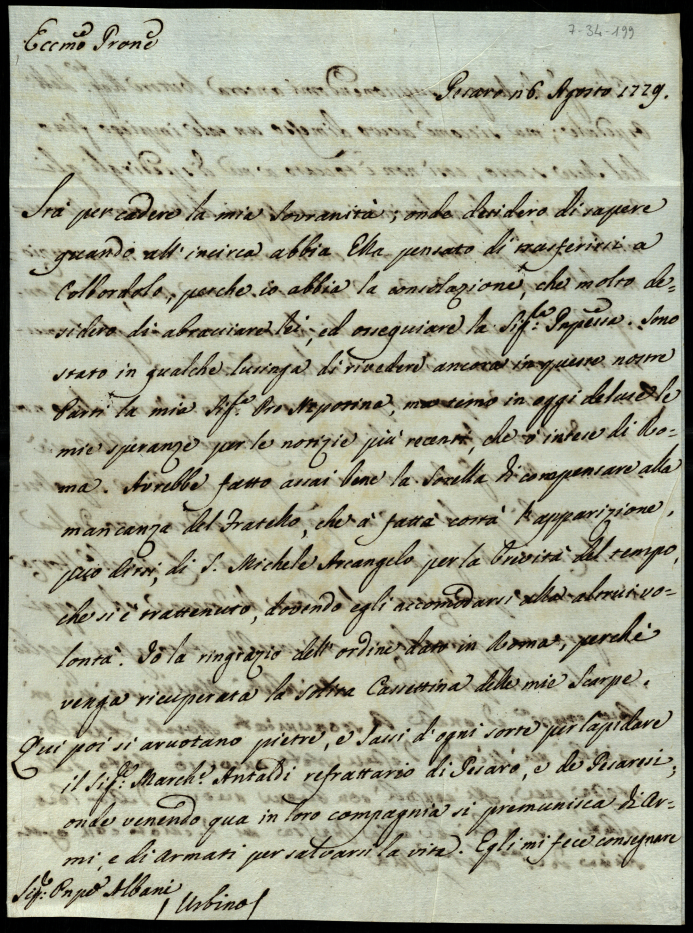 7-34-199
Eccmo Prone
Pesaro 16. Agosto 1779.
Stà per cadere la mia Sovranità; onde desidero di sapere
quando all'incirca abbia Ella pensato di trasferirsi a
Colbordolo, perche io abbia la consolazione, che molto de=
sidero di abracciare lei, ed ossequiare la Sig.ra Pnpessa. Sono
stato in qualche lusinga di rivedere ancora in queste nostre
Parti la mia Sig.ra Pro Nepotina, ma temo in oggi deluse le
mie speranze per le notizie più recenti, che ò intese di Ro=
ma. Avrebbe fatto assai bene la Sorella di compensare alla
mancanza del Fratello, che à fatta costà l'apparizione,
può dirsi, di S. Michele Arcangelo per la brevità del tempo,
che si è trattenuto, dovendo egli accomodarsi alla altrui vo=
lontà. Io la ringrazio dell'ordine dato in Roma, perchè
venga ricuperata la solita Cassettina delle mie Scarpe.
Qui poi si arruotano pietre, e Sassi d'ogni sorte per lapidare
il Sig.r March.e Antaldi refrattario di Pesaro, e de Pesaresi;
onde venendo qua in loro compagnia si premunisca di Ar=
mi, e di Armati per salvarsi la vita. Egli mi fece consegnare
Sig.r Pnpe Albani
Urbino